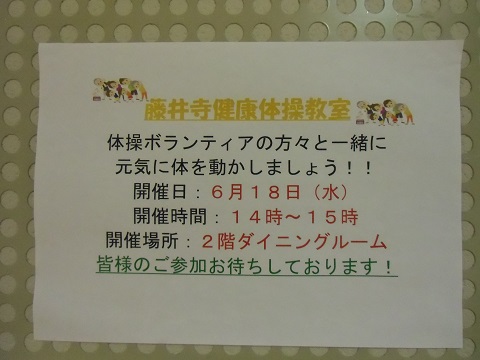 藤井寺健康体操教室
体操ボランティアの方々と一緒に
元気に体を動かしましょう！！
開催日：６月１８日（水）
開催時間：１４時～１５時
開催場所：２階ダイニングルーム
皆様のご参加お待ちしております！